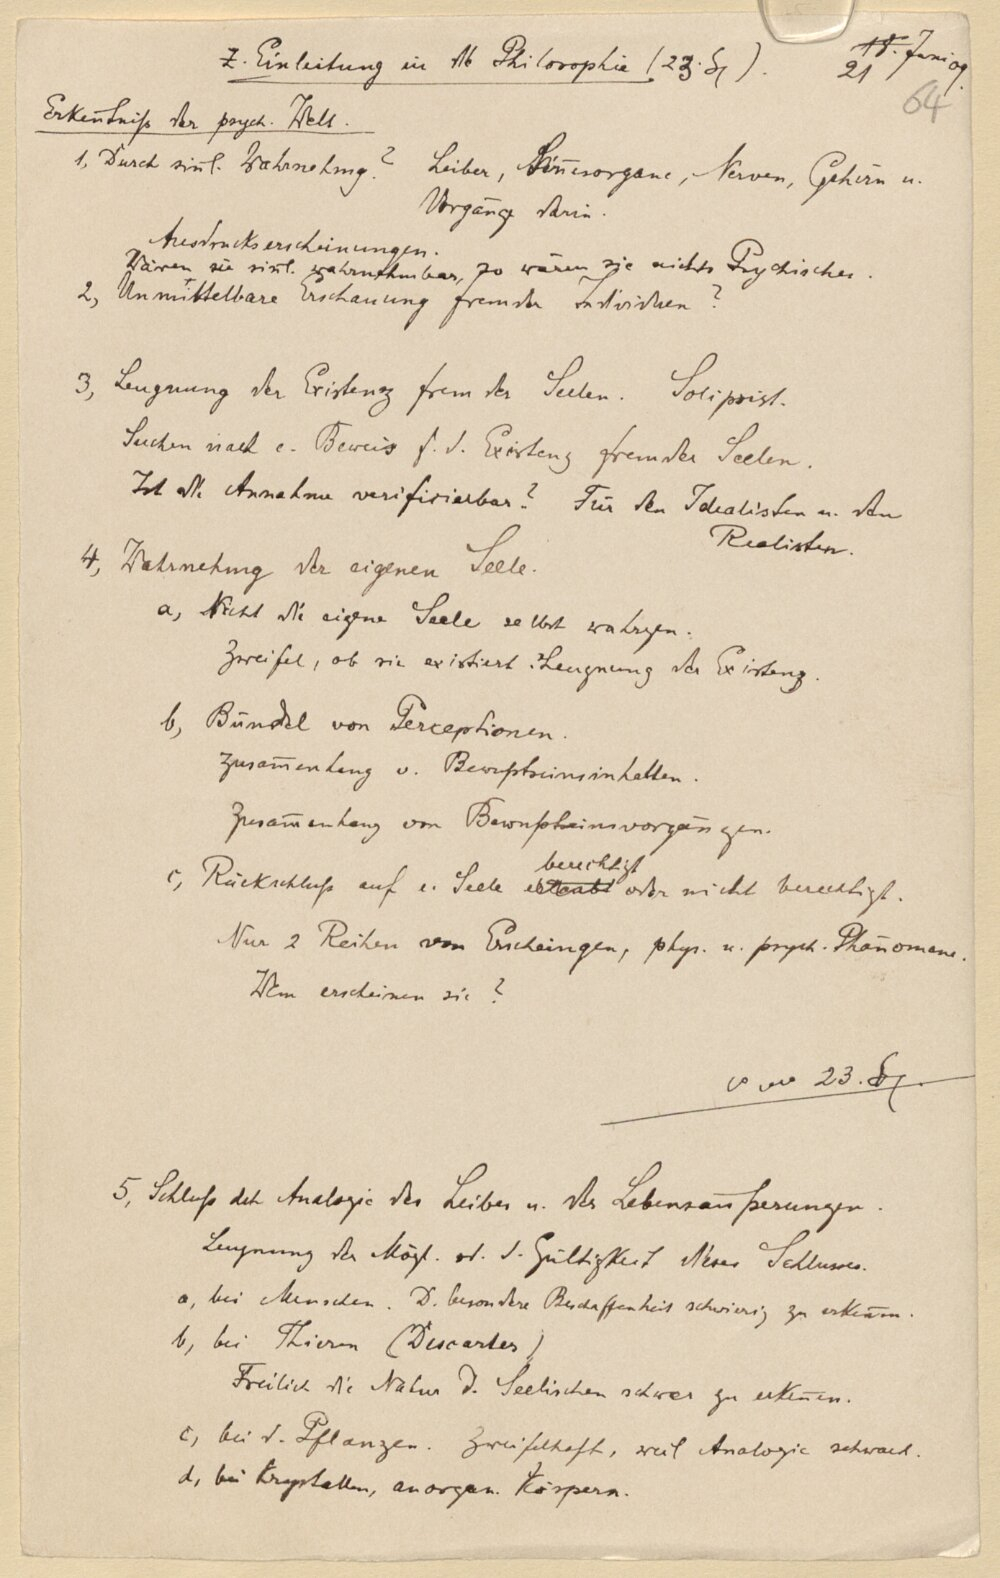 Z. Einleitung in die Philosophie (23. St).
18. Juni 09.
21
64
Erkenntniß der psych. Welt.
1, Durch sinnl. Wahrnehmg.? Leiber, Sinnesorgane, Nerven, Gehirn u.
Vorgänge darin.
Ausdruckserscheinungen.
Wären sie sinnl. wahrnehmbar, so wären sie nichts Psychisches.
2, Unmittelbare Erschauung fremder Individuen?
3, Leugnung der Existenz fremder Seelen. Solipsist.
Suchen nach e. Beweis f. d. Existenz fremder Seelen.
Ist die Annahme verifizierbar? Für den Idealisten u. den
Realisten.
4, Wahrnehmung der eigenen Seele.
a, Nicht die eigene Seele selbst wahrgen.
Zweifel, ob sie existiert. Leugnung der Existenz.
b, Bündel von Perceptionen.
Zusam̄enhang v. Bewußtseinsinhalten.
Zusam̄enhang von Bewußtseinsvorgängen.
c, Rückschluß auf e. Seele erlaubt berechtigt oder nicht berechtigt.
Nur 2 Reihen von Erscheingen, phys. u. psych. Phänomene.
Wem erscheinen sie?
23. St.
5, Schluß dch Analogie des Leibes u. der Lebensäußerungen.
Leugnung der Mögl. od. d. Gültigkeit dieses Schlusses.
a, bei Menschen. D. besondere Beschaffenheit schwierig zu erken̄en.
b, bei Thieren (Descartes)
Freilich die Natur d. Seelischen schwer zu erken̄en.
c, bei d. Pflanzen. Zweifelhaft, weil Analogie schwach.
d, bei Krystallen, anorgan. Körpern.